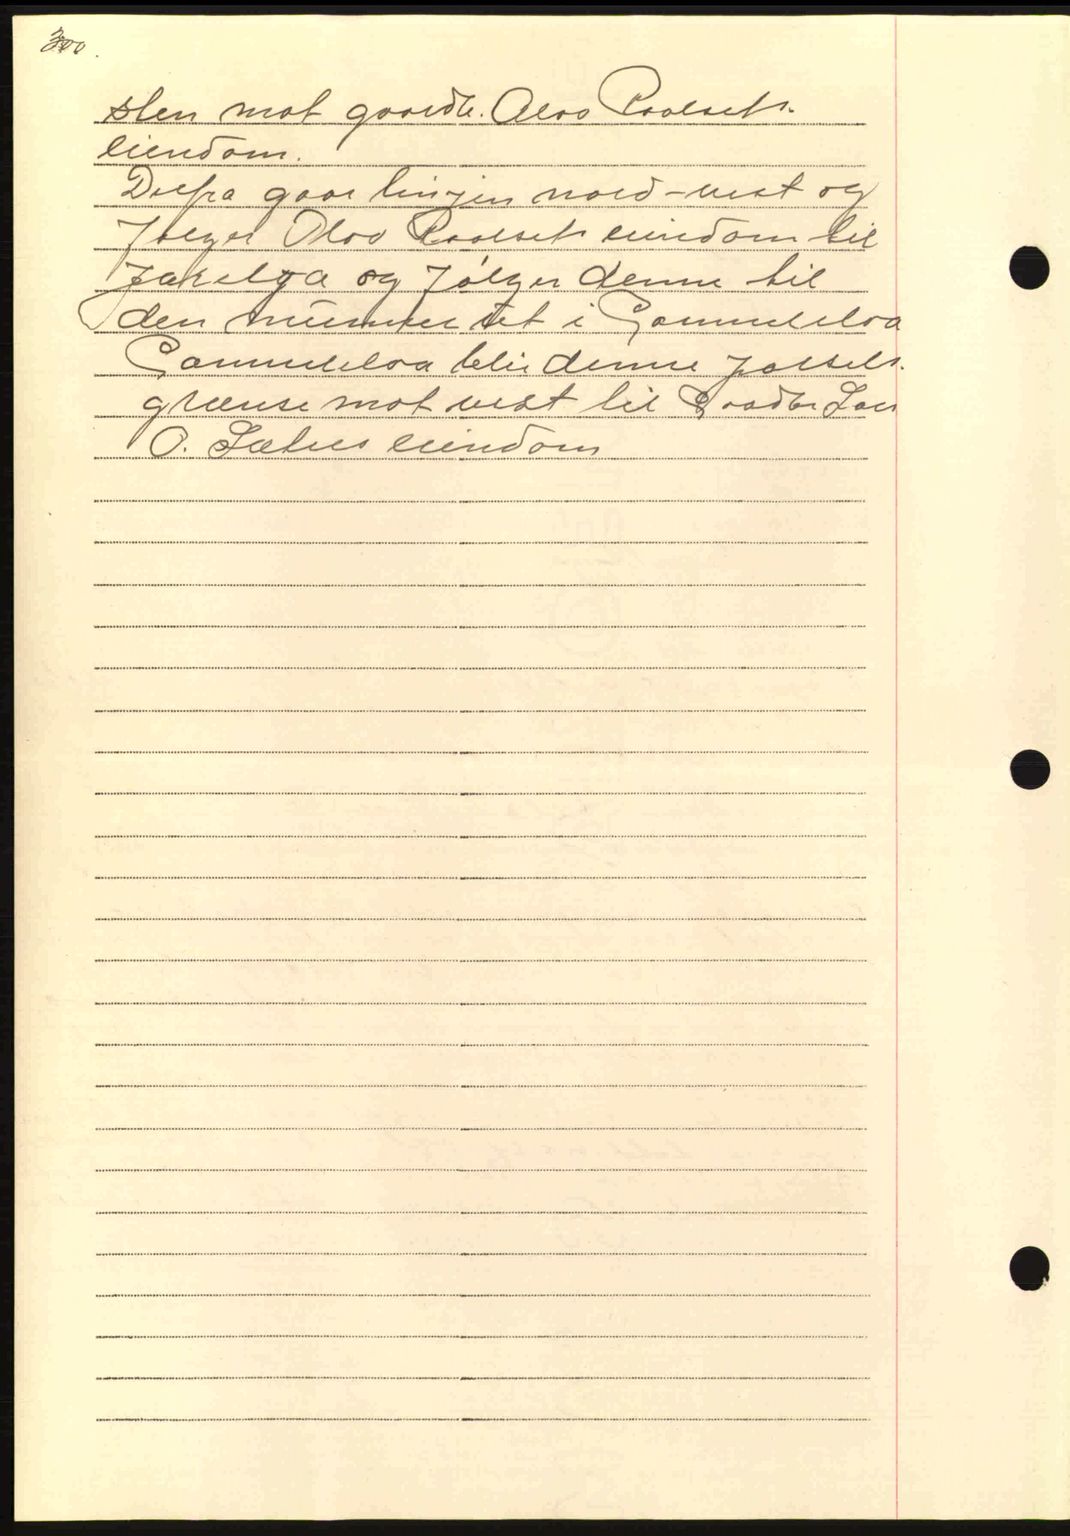 300.
sten mot gaardbr. Olav Paalsets
eiendom.
Derfra gaar linjen nord-vest og
følger Olav Paalsets eiendom til
og følger denne til
den i Gammelelva
Gammelelva blir denne
grænse mot vest til Gaardbr Lars
O. Sætres eiendom